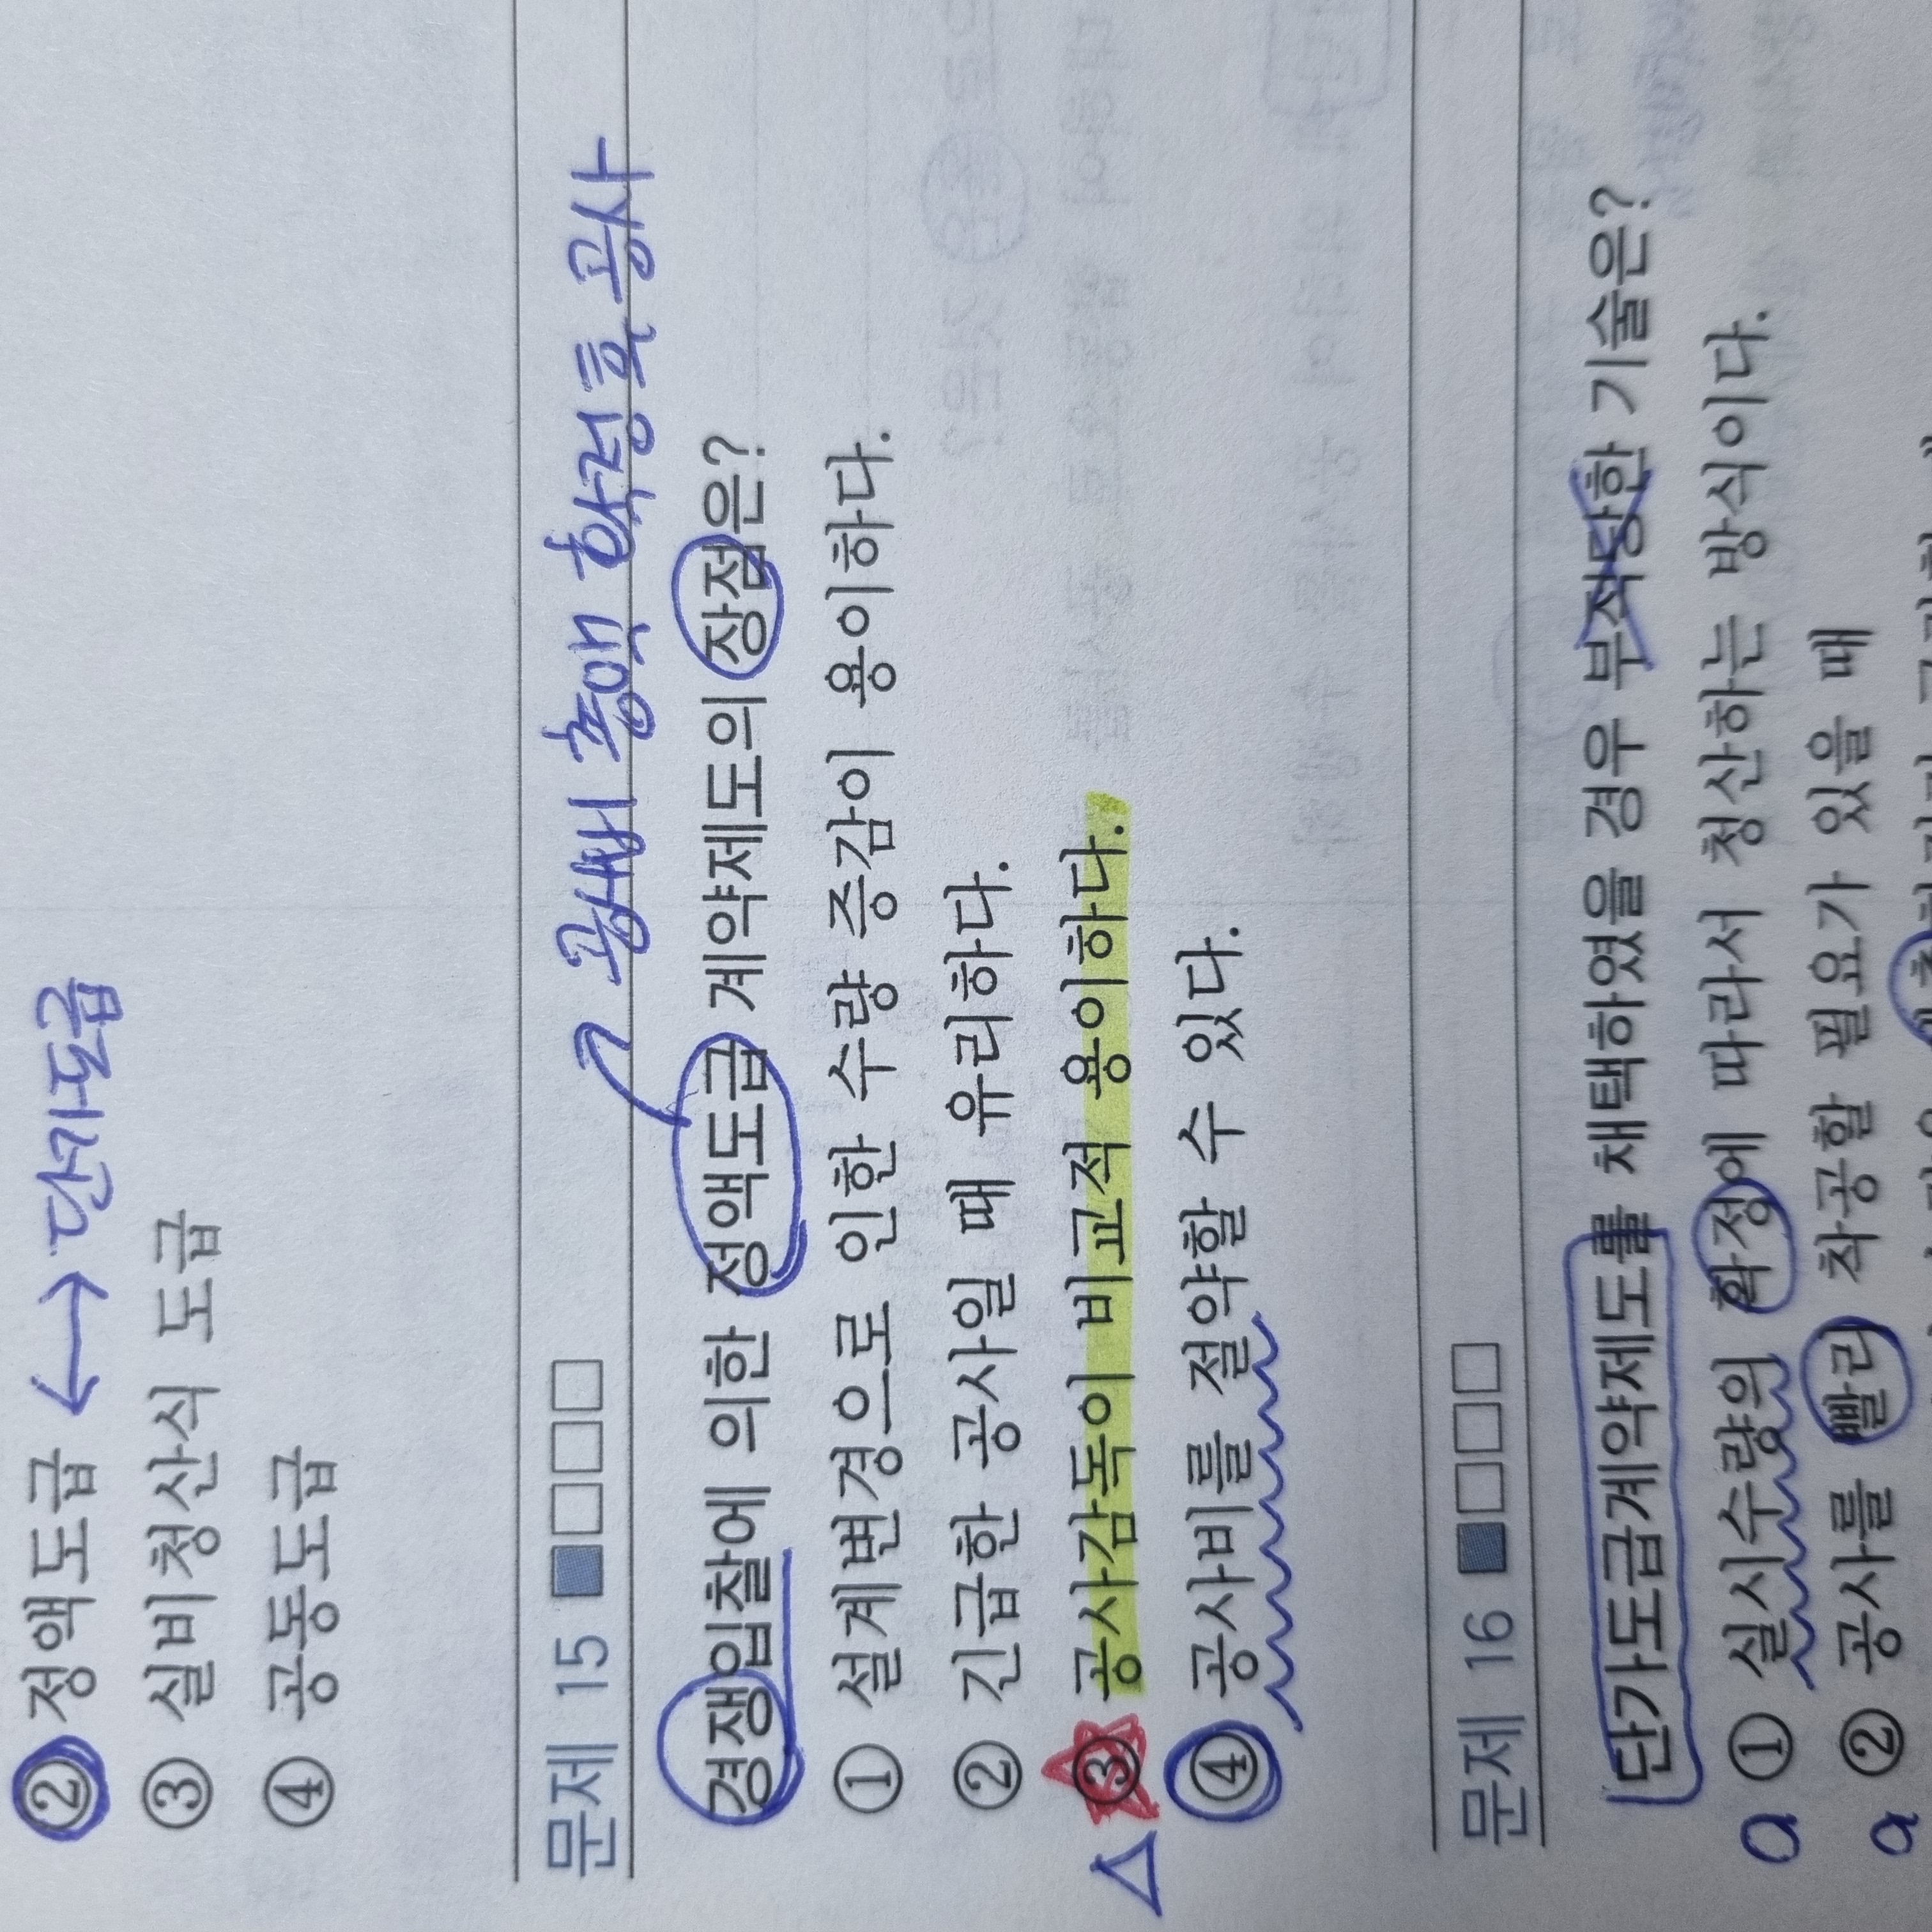 ② 정액도급 ←→ 단가도급
③ 실비청산식 도급
④ 공동도급
문제 15 ■□□□
공사비 총액 확정후 공사
경쟁입찰에 의한 정액도급 계약제도의 장점은?
① 설계변경으로 인한 수량 증감이 용이하다.
② 긴급한 공사일 때 유리하다.
△ ③ 공사감독이 비교적 용이하다.
④ 공사비를 절약할 수 있다.
문제 16 ■□□□
단가도급계약제도를 채택하였을 경우 부적당한 기술은?
① 실시수량의 확정에 따라서 청산하는 방식이다.
② 공사를 빨리 착공할 필요가 있을 때